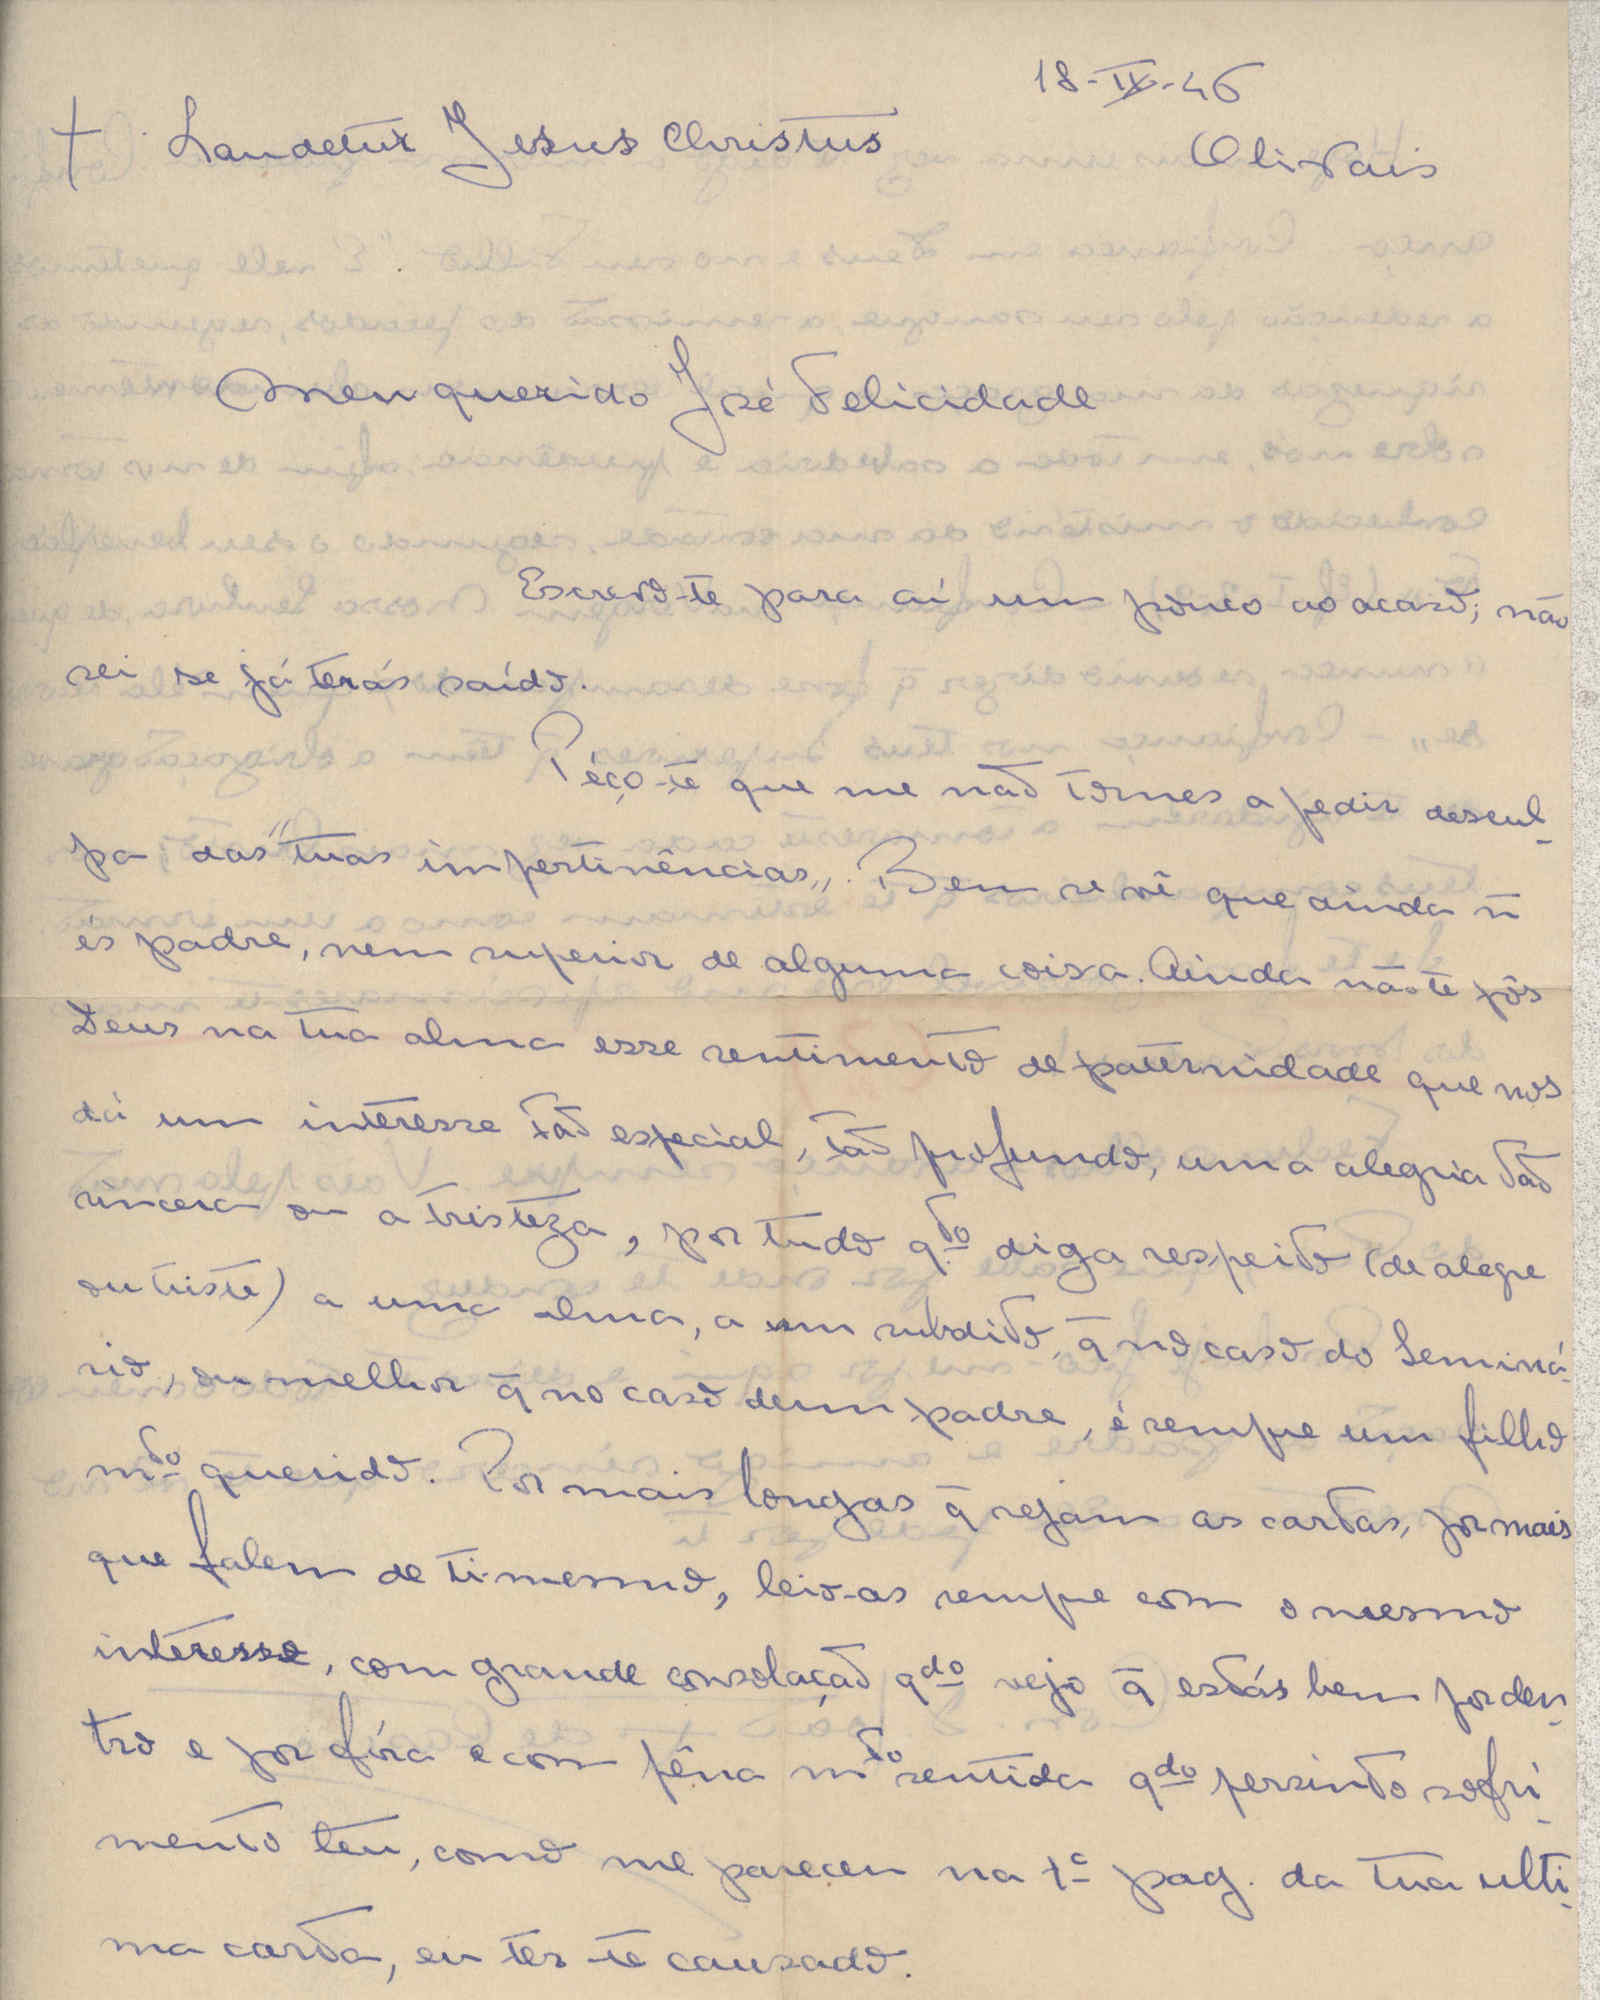 18-IX-46
† Laudetur Jesus Christus
Olivais
Meu querido José Felicidade
Escrevo-te para aí um pouco ao acaso; não
sei se já terás saído.
Péço-te que me não tornes a pedir descul-
pa das "tuas impertinências„. Bem se vê que ainda ñ
és padre, nem superior de alguma coisa. Ainda não te pôs
Deus na tua alma esse sentimento de paternidade que nos
dá um interesse tão especial, tão profundo, uma alegria tão
sincera ou a tristeza, por tudo q.to diga respeito (de alegre
ou triste) a uma alma, a um subdito, q̃ no caso do Seminá-
rio, ou melhor q̃ no caso dum padre, é sempre um filho
m.to querido. Por mais longas q̃ sejam as cartas, por mais
que falem de ti mesmo, leio-as sempre com o mesmo
interesse, com grande consolação qdo vejo q̃ estás bem por den-
tro e por fóra e com pêna mto sentida qdo persinto sofri-
mento teu, como me pareceu na 1ª pag. da tua ulti-
ma carta, eu ter-te causado.